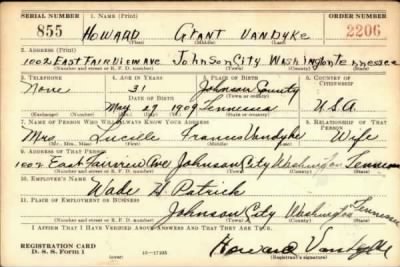 SERIAL NUMBER 1. NAME (Print) ORDER NUMBER
855 HOWARD GRANT VANDYKE 2206
(First) (Middle) (Last)
2. ADDRESS (Print)
1002 EAST FAIRVIEW AVE JOHNSON CITY WASHINGTON TENNESSEE
(Number and street or R. F. D. number) (Town) (County) (State)
3. TELEPHONE 4. AGE IN YEARS 5. PLACE OF BIRTH 6. COUNTRY OF CITIZENSHIP
None 31 Johnson County
DATE OF BIRTH (Town or county)
May 29 1909 Tennessee U.S.A.
(Exchange) (Number) (Mo.) (Day) (Yr.) (State or country)
7. NAME OF PERSON WHO WILL ALWAYS KNOW YOUR ADDRESS 8. RELATIONSHIP OF THAT PERSON
Mrs. Lucille Francis Vandyke Wife
(Mr., Mrs., Miss) (First) (Middle) (Last)
9. ADDRESS OF THAT PERSON
1002 East Fairview Ave Johnson City Washington Tennessee
(Number and street or R. F. D. number) (Town) (County) (State)
10. EMPLOYER'S NAME
Wade H Patrick
11. PLACE OF EMPLOYMENT OR BUSINESS
Johnson City Washington Tennessee
(Number and street or R. F. D. number) (Town) (County) (State)
I AFFIRM THAT I HAVE VERIFIED ABOVE ANSWERS AND THAT THEY ARE TRUE.
REGISTRATION CARD
D. S. S. Form 1 (over) Howard Vandyke
(Registrant's signature)